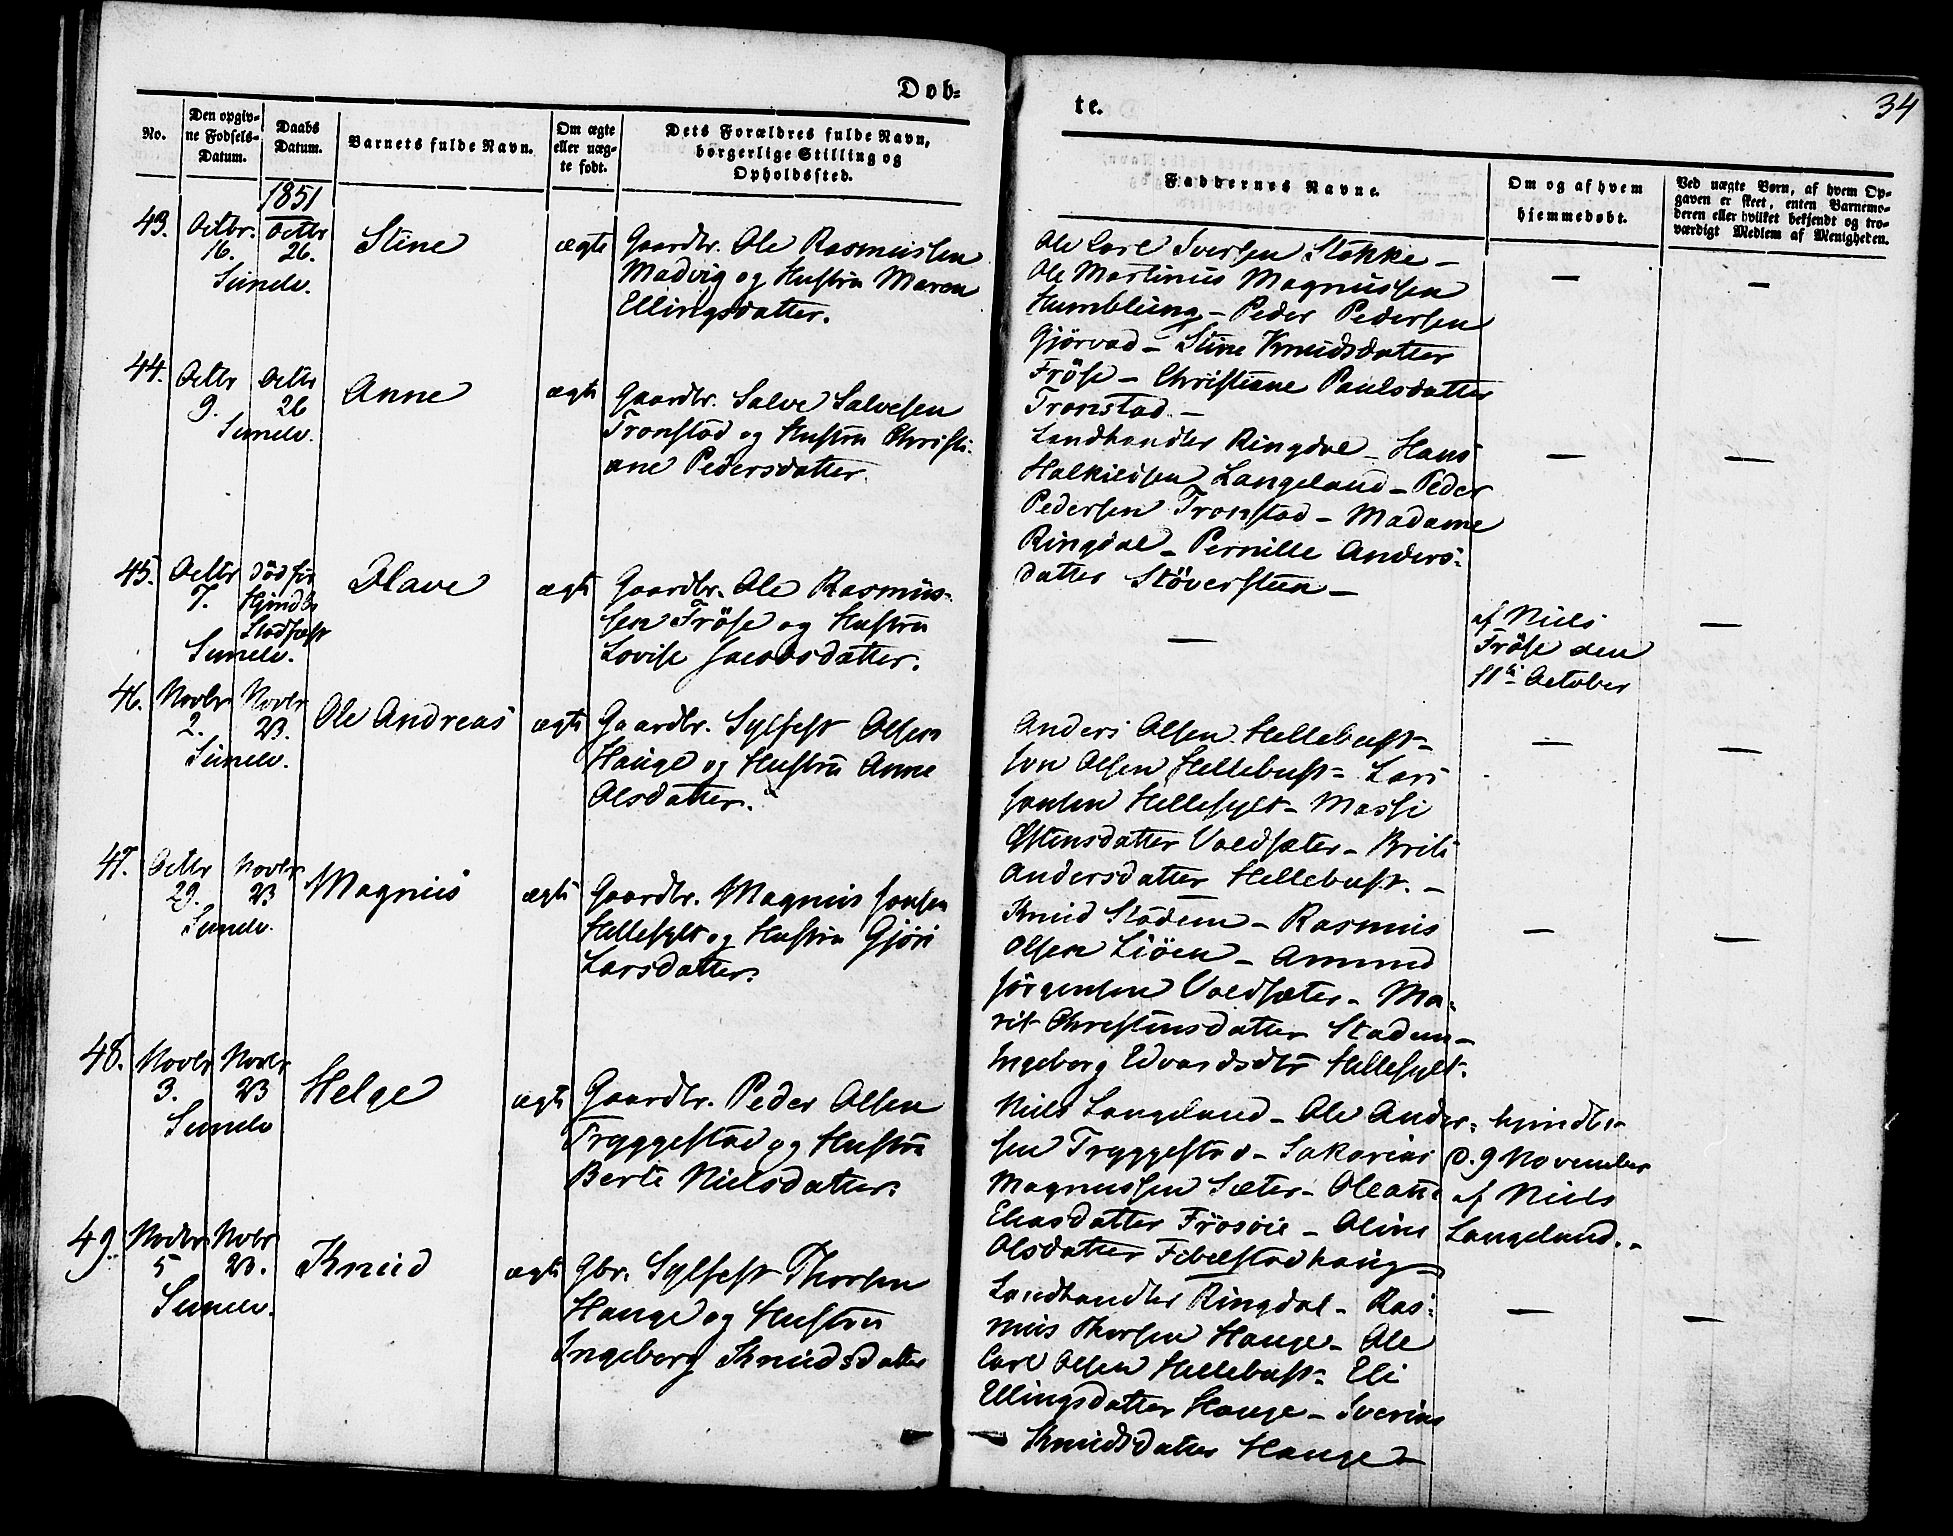 Døb=
te.
34
No.
Den opgiv-
ne Fødsels-
Datum.
Daabs
Datum.
Barnets fulde Navn.
Om ægte
eller uæg-
te født.
Dets Forældres fulde Navn,
borgerlige Stilling og
Opholdssted.
Faddernes Navne.
Om og af hvem
hjemmedøbt.
Ved uægte Børn, af hvem Op-
gaven er skeet, enten Barnemo-
deren eller hvilket bekjendt og tro-
værdigt Medlem af Menigheden.
1851
43.
Octbr.
16.
Octbr
26.
Sunelv.
Stine
ægte
Gaardbr. Ole Rasmussen
Madvig og Hustru Maren
Ellingsdatter.
Ole Carl Iversen Stokke –
Ole Martinus Magnussen
Humblung – Peder Pedersen
Gjørvad – Stine Knudsdatter
Fröse – Christiane Paulsdatter
Tronstad. –
—
—
44.
Octbr
9.
Octbr
26
Sunelv.
Anne
ægte
Gaardbr. Salve Salvesen
Tronstad og Hustru Christi-
ane Pedersdatter.
Landhandler Ringdal – Hans
Halkieldsen Langeland – Peder
Pedersen Tronstad – Madame
Ringdal – Pernille Anders-
datter Stöversteen –
—
—
45.
Octbr
7.
död för
Stadfæst
Sunelv.
Olave
ægte
Gaardbr. Ole Rasmus-
sen Fröse og Hustru
Lovise Jacobsdatter.
—
af Niels
Fröse den
11te October
—
46.
Novbr
2.
Novbr
23.
Sunelv.
Ole Andreas
ægte
Gaardbr. Sylfest Olsen
Hauge og Hustru Anne
Olsdatter.
Anders Olsen Hellebust –
Jon Olsen Hellebust – Lars
Jonsen Hellesylt – Massi
Østensdatter Valdsæter – Brite
Andersdatter Hellebust. –
—
—
47.
Octbr
29.
Novbr
23
Sunelv.
Magnus
ægte
Gaardbr. Magnus Jonsen
Hellesylt og Hustru Gjøri
Larsdatter.
Knud Stadem – Rasmus
Olsen Liöen – Amund
Jörgensen Valdsæter – Ma-
rit Christensdatter Stadem –
Ingeborg Edvardsdtr Hellesylt.
—
—
48.
Novbr
3.
Novbr
23
Sunelv
Helge
ægte
Gaardbr. Peder Olsen
Tryggestad og Hustru
Berte Nielsdatter.
Niels Langeland – Ole Ander-
sen Tryggestad – Sakarias
Magnussen Sæter – Oleane
Eliasdatter Frösöie – Oline
Olsdatter Fibelstadhaug –
hjmdbt
d. 9 November
af Niels
Langeland. –
49.
Novbr
5
Novbr
23.
Sunelv.
Knud
ægte
Gbr. Sylfest Thorsen
Hauge og Hustru
Ingeborg Knudsdatter
Landhandler Ringdal – Ras-
mus Thorsen Hauge – Ole
Carl Olsen Hellebust – Eli
Ellingsdatter Hauge – Iverine
Knudsdatter Hauge –
—
—